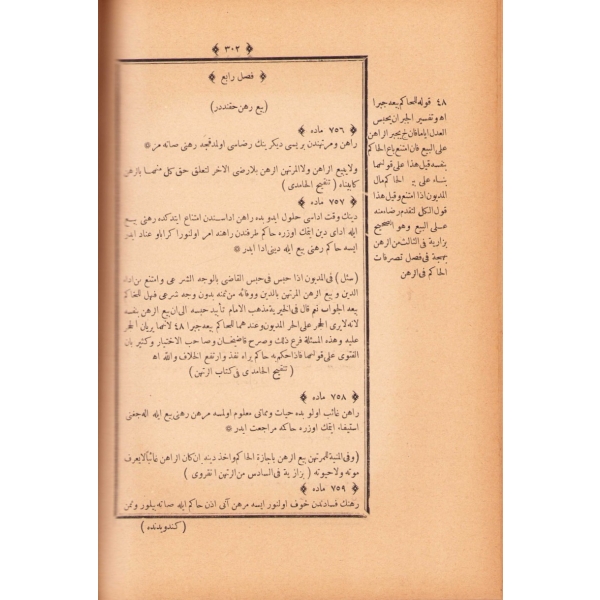 ﴿ ٣٠٢ ﴾
﴿ فصل رابع ﴾
(بيع رهن حقنده در)
﴿ ٧٥٦ ماده ﴾
راهن ومرتهندن بريسى ديكرينك رضاسى اولمدقجه رهنى صاته مز
ولايبيع الراهن ولاالمرتهن الرهن بلارضى الآخر لتعلق حق كل منهما بالرهن
كابيناه ( تنقيح الحامدى )
﴿ ٧٥٧ ماده ﴾
دينك وقت اداسى حلول ايدوبده راهن اداسندن امتناع ايتدكده رهنى بيع
ايله اداى دين ايتمك اوزره حاكم طرفندن راهنه امر اولنور اكر اباو عناد ايدر
ايسه حاكم رهنى بيع ايله دينى ادا ايدر
( سئل ) فى المديون اذا حبس فى حبس القاضى بالوجه الشرعى و امتنع من اداء
الدين و بيع الرهن المرتهن بالدين ووفائه من ثمنه بدون وجه شرعى فهل للحاكم
بيعه الجواب نعم قال فى الخيرية مذهب الامام تأبيد حبسه الى ان يبيع الرهن بنفسه
لانه لايرى الحجر على الحر المديون وعندهما للحاكم بيعه جبرا ٤٨ لانهما يريان الحجر
عليه وهذه المسئلة فرع ذلك وصرح قاضيخان وصاحب الاختيار وكثير بان
الفتوى على قولهما فاذا حكم به حاكم يراه نفذ وارتفع الخلاف والله اه
( تنقيح الحامدى فى كتاب الرهن )
﴿ ٧٥٨ ماده ﴾
راهن غائب اولوبده حيات ومماتى معلوم اولمسه مرهن رهنى بيع ايله اله جغنى
استيفاء ايتمك اوزره حاكمه مراجعت ايدر
(وفى المنية للمرتهن بيع الرهن باجازة الحاكم واخذ دينه ان كان الراهن غائبا لايعرف
موته ولاحيوته ( بزازية فى السادس من الرهن انقروى )
﴿ ٧٥٩ ماده ﴾
رهنك فسادندن خوف اولنور ايسه مرهن آنى اذن حاكم ايله صاته بيلور وثمن
(كندويدنده)
٤٨ قوله للحاكم بيعه جبرا
اه وتفسير الجبران يحبس
العدل اياما فان لج يجبر الراهن
على البيع فان امتنع باع الحاكم
بنفسه قيل هذا على قولهما
بناء على بيع الحاكم مال
المديون اذا امتنع وقيل هذا
قول الكل لتقدم رضا منه
على البيع وهو الصحيح
بزازية فى الثالث من الرهن
بهجة فى فصل تصرفات
الحاكم فى الرهن